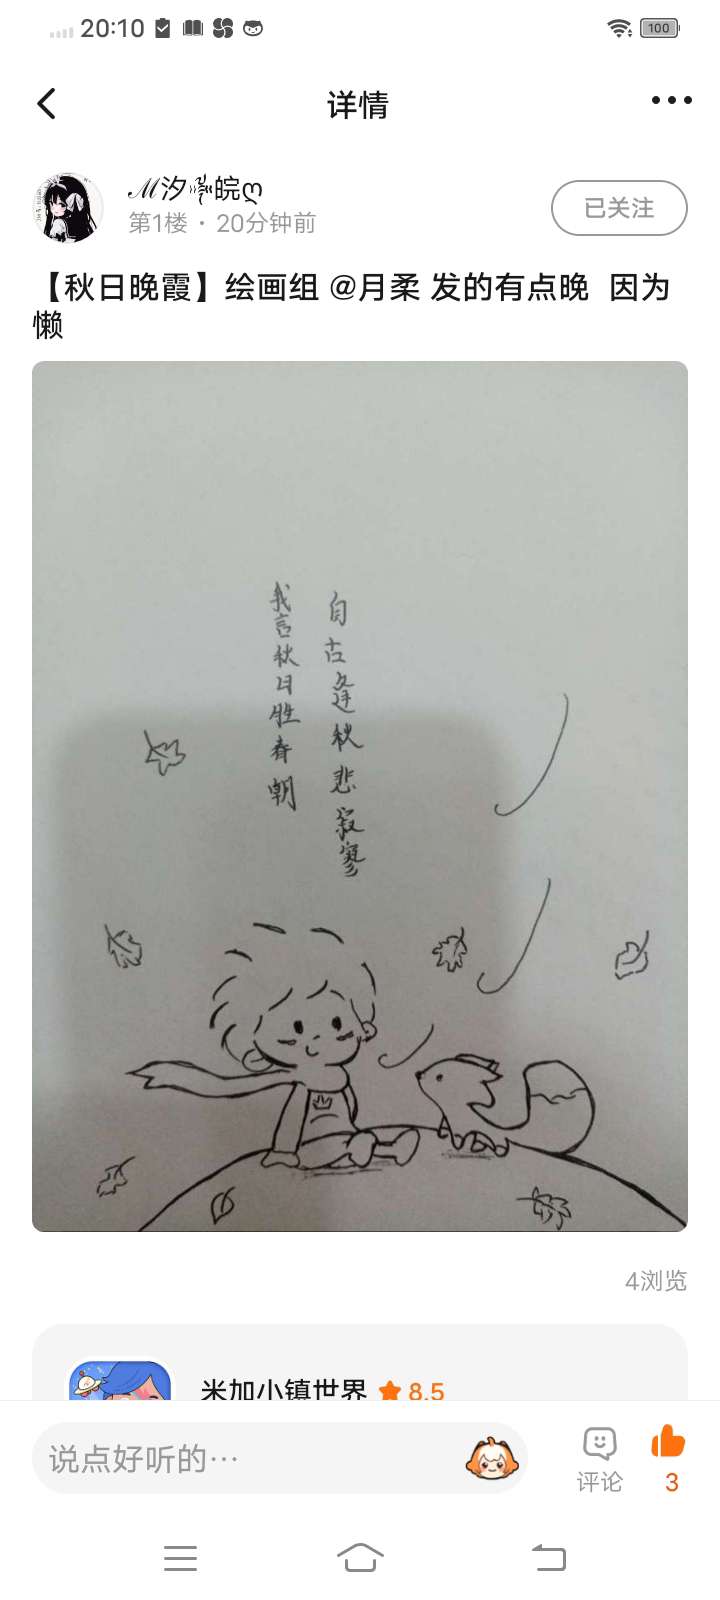 20:10
100
详情
ℳ汐皖ღ
第1楼 · 20分钟前
已关注
【秋日晚霞】绘画组 @月柔 发的有点晚  因为
懒
自古逢秋悲寂寥
我言秋日胜春朝
4浏览
米加小镇世界
8.5
说点好听的…
评论
3